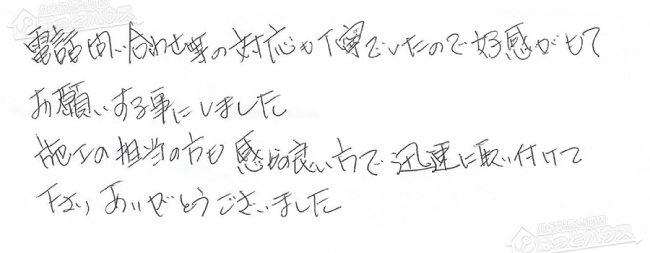 電話問い合わせ等の対応も丁寧でしたので好感がもて
お願いする事にしました
施工の担当の方も感じの良い方で迅速に取り付けて
下さりありがとうございました